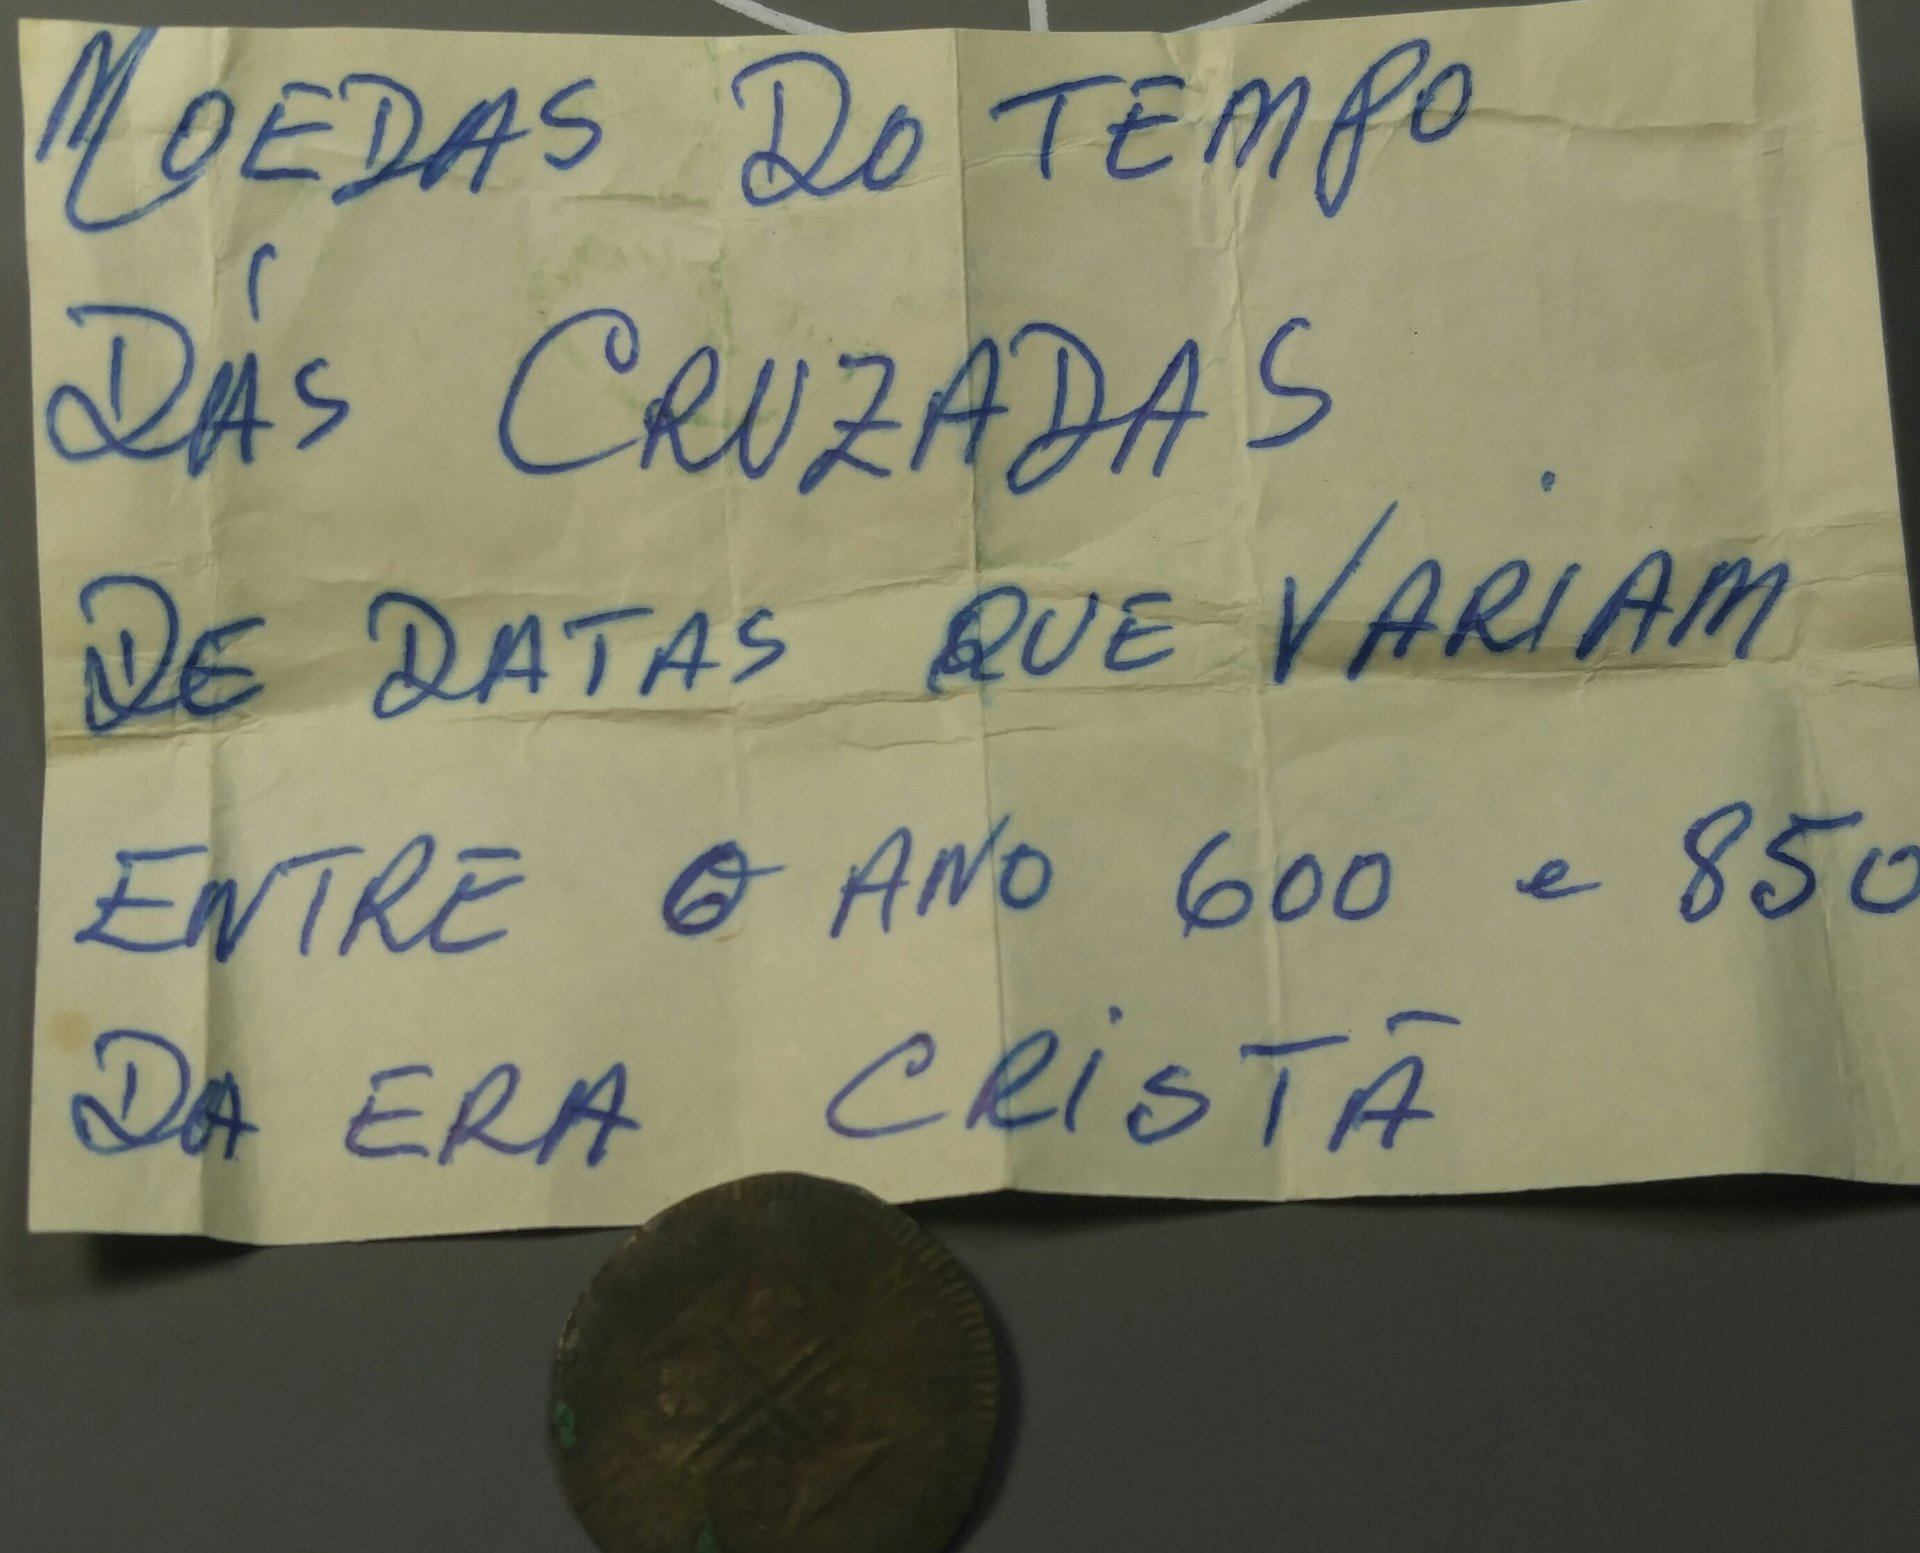 MOEDAS DO TEMPO
DÁS CRUZADAS
DE DATAS QUE VARIAM
ENTRE O ANO 600 e 850
DA ERA CRISTÃ